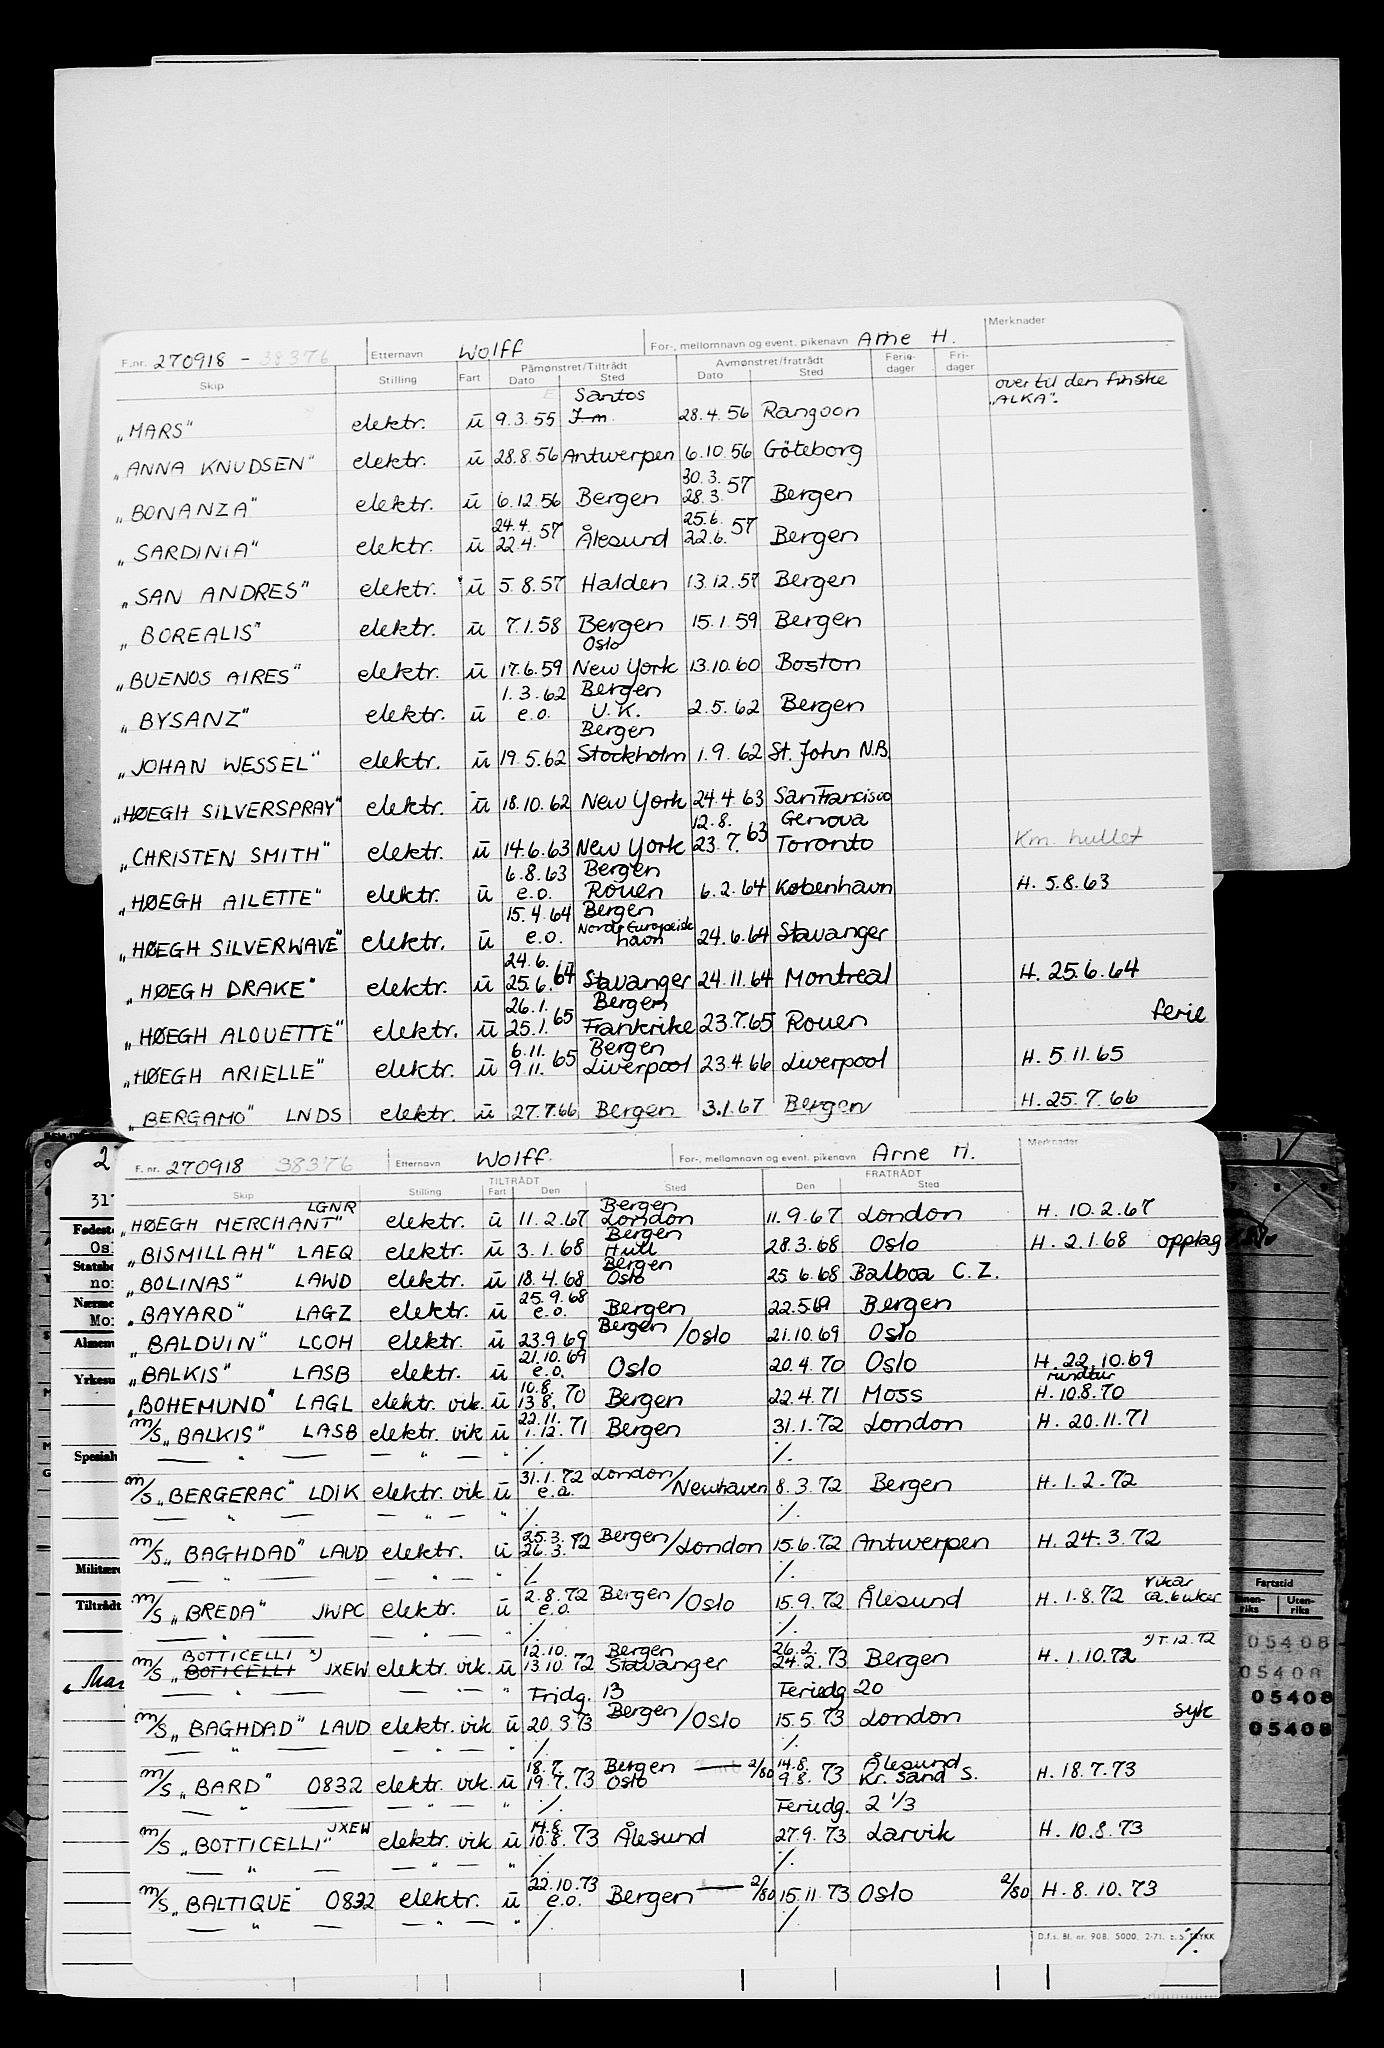 F.nr. 270918 - 38376 Etternavn Wolff For-, mellomnavn og event. pikenavn Arne H. Merknader
Skip Stilling Fart Påmønstret/Tiltrådt Dato Sted Avmønstret/fratrådt Dato Sted Feriedager Fridager
over til den finske „ALKA“.
„MARS“ elektr. ū 9.3.55 Santos 28.4.56 Rangoon
„ANNA KNUDSEN“ elektr. ū 28.8.56 Antwerpen 6.10.56 Göteborg
„BONANZA“ elektr. ū 6.12.56 Bergen 30.3. 28.3. 57 Bergen
„SARDINIA“ elektr. ū 24.4. 22.4. 57 Ålesund 25.6. 22.6. 57 Bergen
„SAN ANDRES“ elektr. ū 5.8.57 Halden 13.12.57 Bergen
„BOREALIS“ elektr. ū 7.1.58 Bergen 15.1.59 Bergen
„BUENOS AIRES“ elektr. ū 17.6.59 Oslo New York 13.10.60 Boston
„BYSANZ“ elektr. ū 1.3.62 e.o. Bergen U.K. 2.5.62 Bergen
„JOHAN WESSEL“ elektr. ū 19.5.62 Bergen Stockholm 1.9.62 St. John N.B.
„HØEGH SILVERSPRAY“ elektr. ū 18.10.62 New York 24.4.63 San Francisco
„CHRISTEN SMITH“ elektr. ū 14.6.63 New York 12.8. 23.7. 63 Genova Toronto Km. hullet
„HØEGH AILETTE“ elektr. ū 6.8.63 e.o. Bergen Rouen 6.2.64 København H. 5.8.63
„HØEGH SILVERWAVE“ elektr. ū 15.4.64 e.o. Bergen Nord-Europeisk havn 24.6.64 Stavanger
„HØEGH DRAKE“ elektr. ū 24.6. 25.6. 64 Stavanger 24.11.64 Montreal H. 25.6.64
„HØEGH ALOUETTE“ elektr. ū 26.1. 25.1. 65 Bergen Frankrike 23.7.65 Rouen ferie
„HØEGH ARIELLE“ elektr. ū 6.11. 9.11. 65 Bergen Liverpool 23.4.66 Liverpool H. 5.11.65
„BERGAMO“ LNDS elektr. ū 27.7.66 Bergen 3.1.67 Bergen H. 25.7.66
F. nr. 270918 38376 Etternavn Wolff For-, mellomnavn og event. pikenavn Arne H. Merknader
Skip Stilling TILTRÅDT Fart Den Sted FRATRÅDT Den Sted
„HØEGH MERCHANT“ LGNR elektr. ū 11.2.67 Bergen London 11.9.67 London H. 10.2.67
„BISMILLAH“ LAEQ elektr. ū 3.1.68 Bergen Hull 28.3.68 Oslo H. 2.1.68 opplag
„BOLINAS“ LAWD elektr. ū 18.4.68 Bergen Oslo 25.6.68 Balboa C.Z.
„BAYARD“ LAGZ elektr. ū 25.9.68 e.o. Bergen 22.5.69 Bergen
„BALDUIN“ LCOH elektr. ū 23.9.69 Bergen/Oslo 21.10.69 Oslo
„BALKIS“ LASB elektr. ū 21.10.69 e.o. Oslo 20.4.70 Oslo H. 22.10.69 rundtur
„BOHEMUND“ LAGL elektr. vik. ū 10.8. 13.8. 70 Bergen 22.4.71 Moss H. 10.8.70
m/s „BALKIS“ LASB elektr. vik ū 22.11. 1.12. 71 Bergen 31.1.72 London H. 20.11.71
— „ — — „ — „ ·/. ·/.
m/s „BERGERAC“ LDIK elektr. vik ū 31.1.72 e.a. London/Newhaven 8.3.72 Bergen H. 1.2.72
— „ — — „ — „ ·/. ·/.
m/s „BAGHDAD“ LAUD elektr. ū 25.3. 26.3. 72 Bergen/London 15.6.72 Antwerpen H. 24.3.72
— „ — — „ — „ ·/. ·/.
m/s „BREDA“ JWPC elektr. ū 2.8.72 e.o. Bergen/Oslo 15.9.72 Ålesund H. 1.8.72 vikar ca. 6 uker
— „ — — „ — „ ·/. ·/.
m/s „BOTTICELLI BOTICELLI x) JXEW elektr. vik. ū 12.10. 13.10 72 Bergen Stavanger 26.2. 24.2. 73 Bergen H. 1.10.72 x) T.12.72
— „ — — „ — „ Fridg. 13 Feriedg 20
m/s „BAGHDAD“ LAUD elektr. vik ū 20.3.73 Bergen/Oslo 15.5.73 London syk
— „ — — „ — „ ·/. ·/.
m/s „BARD“ 0832 elektr. vik. ū 18.7. 19.7. 73 Bergen Oslo 2/80 14.8. 9.8. 73 Ålesund Kr. sand S. H. 18.7.73
— „ — — „ — „ ·/. Feriedg. 2 1/3
m/s „BOTTICELLI“ JXEW elektr. vik ū 14.8. 10.8. 73 Ålesund 27.9.73 Larvik H. 10.8.73
— „ — — „ — „ ·/. ·/.
m/s „BALTIQUE“ 0832 elektr. ū 22.10.73 e.o. Bergen 2/80 15.11.73 Oslo 2/80 H. 8.10.73
— „ — — „ — „ ·/. ·/.
D.f.s. Bl. nr. 908. 5000. 2-71. ·/.
2
317
Fødeste
Os
Statsbo
no
Nærme
Mo
Almen
Yrkesu
Spesial
Militære
Tiltrådt
„Mar
Fartstid
Innenriks Utenriks
05408
05408
05408
05408